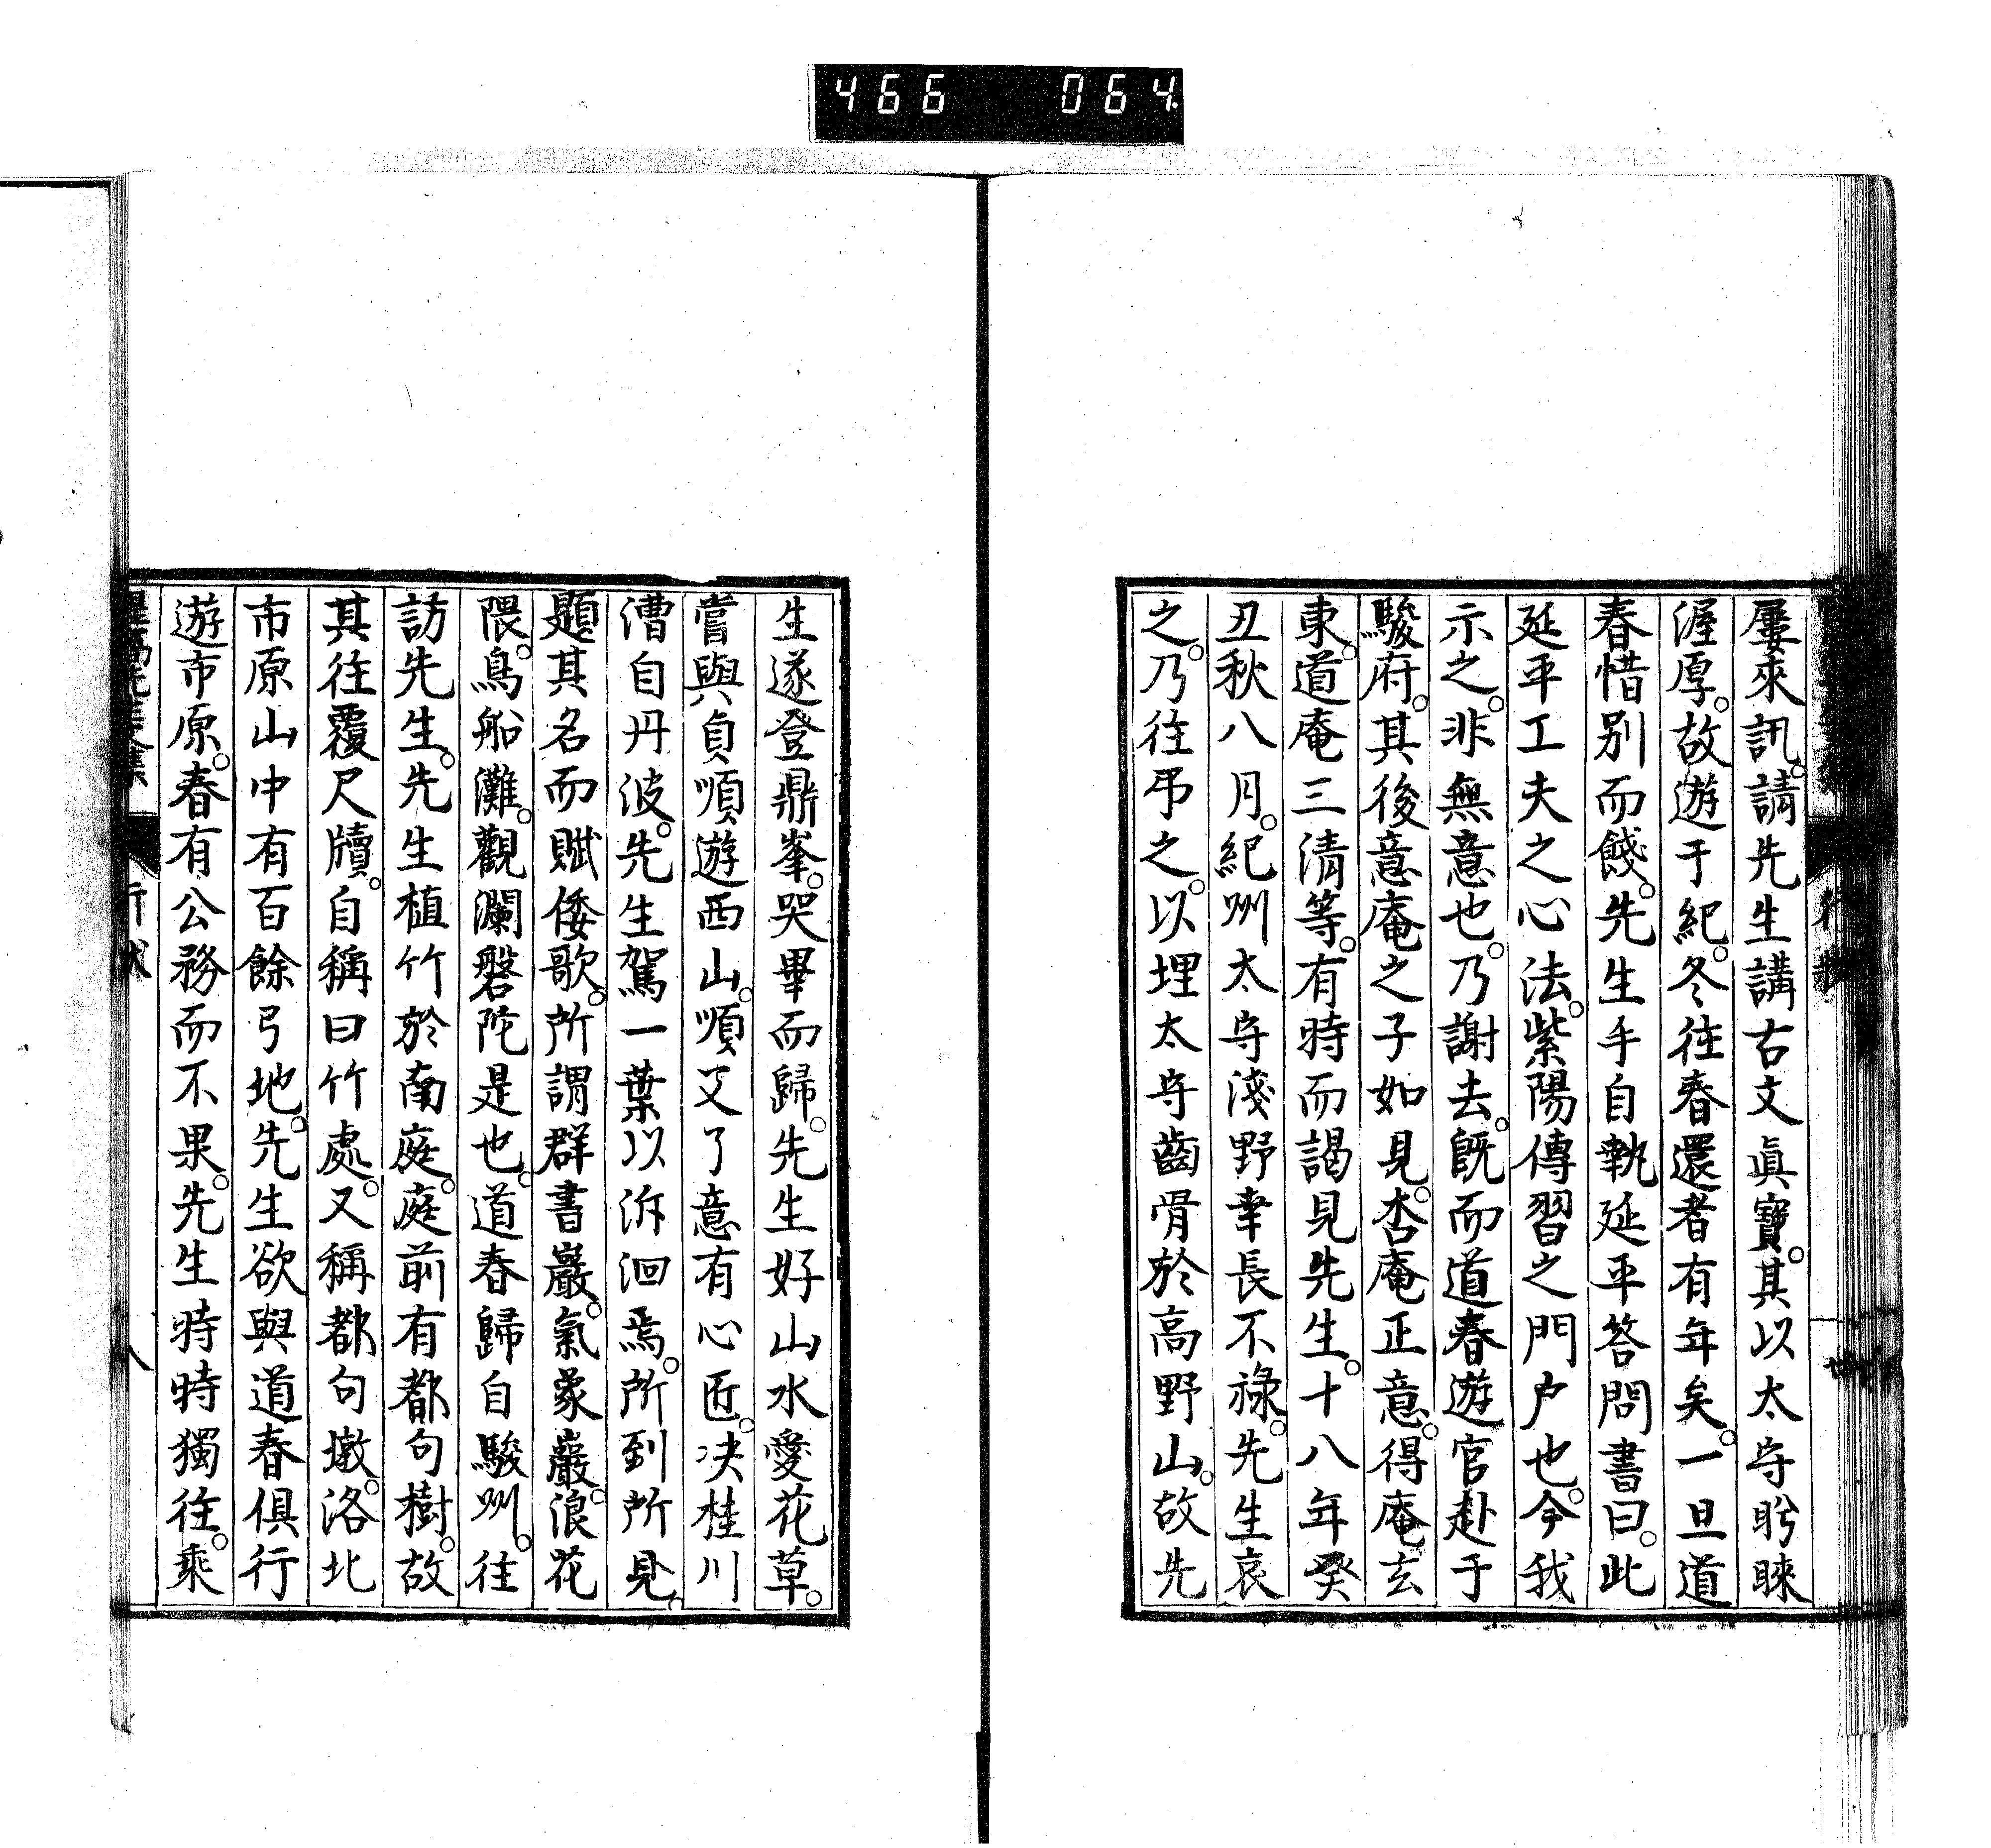 466 064
屢來訊。請先生講古文眞寶。其以太守眄睞
渥厚。故遊于紀。冬往春還者有年矣。一旦道
春惜別而餞。先生手自執延平答問書曰。此
延平工夫之心法。紫陽傳習之門戶也。今我
示之。非無意也。乃謝去。旣而道春遊官赴于
駿府。其後意庵之子如見。杏庵正意。得庵玄
東。道庵三清等。有時而謁見先生。十八年癸
丑秋八月。紀州太守淺野幸長不祿。先生哀
之。乃往弔之。以埋太守齒骨於高野山。故先
生遂登鼎峯。哭畢而歸。先生好山水愛花草。
嘗與貞順遊西山。順又了意有心匠。決桂川
漕自丹波。先生駕一葉以泝洄焉。所到所見。
題其名而賦倭歌。所謂群書巖。氣象巖。浪花
隈。鳥船灘。觀瀾磐陀是也。道春歸自駿州。往
訪先生。先生植竹於南庭。庭前有都句樹。故
其往覆尺牘。自稱曰竹處。又稱都句墩。洛北
市原山中有百餘弓地。先生欲與道春俱行
遊市原。春有公務而不果。先生時時獨往。乘
行狀
八